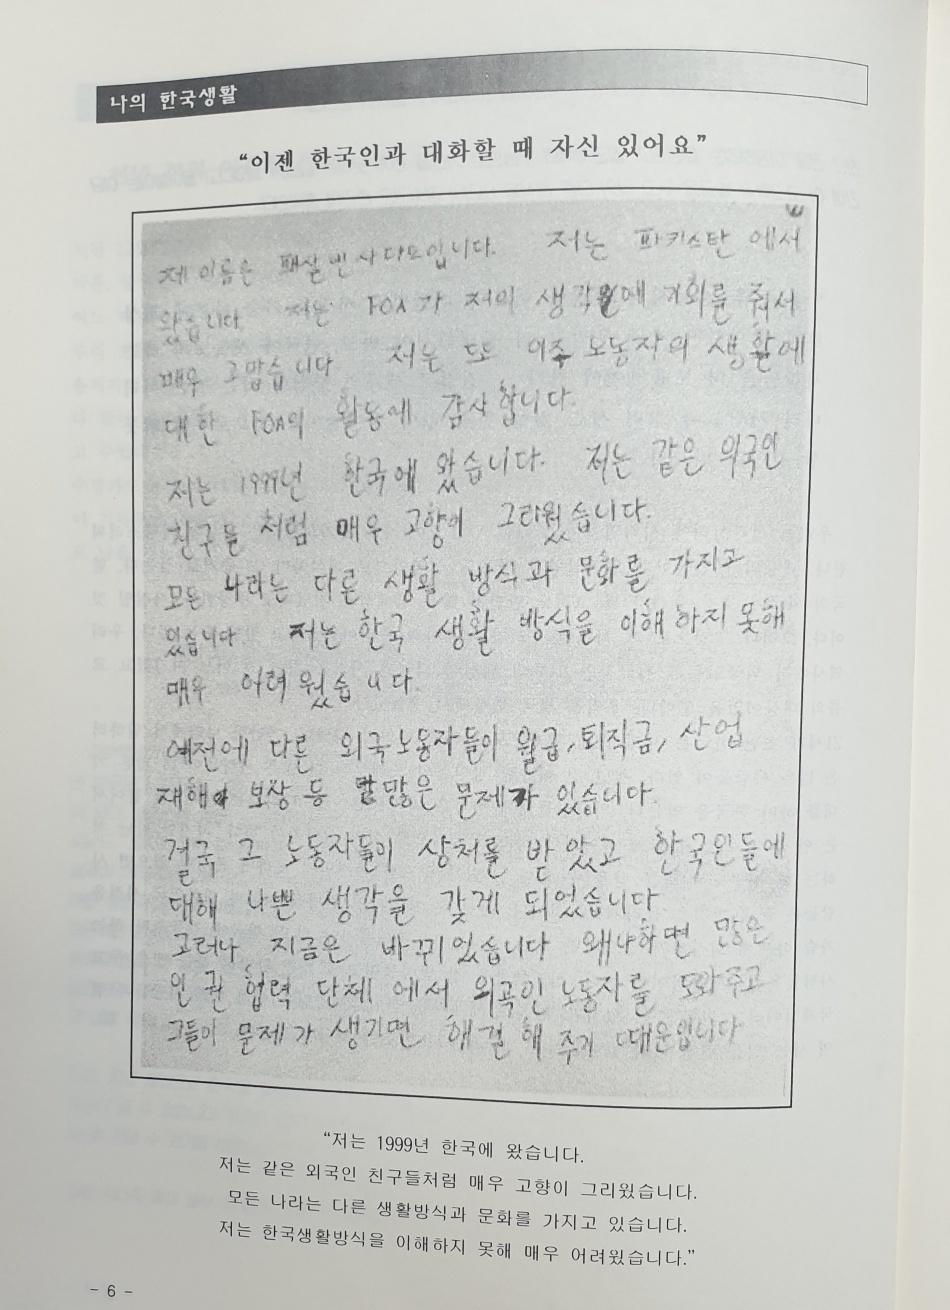 나의 한국생활
“이젠 한국인과 대화할 때 자신 있어요”
제 이름은 패샬빈사다모입니다. 저는 파키스탄 에서
왔습니다 저는 FOA가 저의 생각에 기회를 줘서
매우 고맙습니다 저는 또 외주 노동자의 생활에
대한 FOA의 활동에 감사합니다.
저는 1999년 한국에 왔습니다. 저는 같은 외국인
친구들 처럼 매우 고향이 그리웠습니다.
모든 나라는 다른 생활 방식과 문화를 가지고
있습니다 저는 한국 생활 방식을 이해 하지 못해
매우 어려웠습니다.
예전에 다른 외국노동자들이 월급, 퇴직금, 산업
재해 보상 등 많은 문제가 있습니다.
결국 그 노동자들이 상처를 받았고 한국인들에
대해 나쁜 생각을 갖게 되었습니다
고러나 지금은 바뀌있습니다 왜냐하면 많은
인권 협력 단체에서 외국인 노동자를 도와주고
그들이 문제가 생기면 해결해 주기 때운입니다
“저는 1999년 한국에 왔습니다.
저는 같은 외국인 친구들처럼 매우 고향이 그리웠습니다.
모든 나라는 다른 생활방식과 문화를 가지고 있습니다.
저는 한국생활방식을 이해하지 못해 매우 어려웠습니다.”
- 6 -